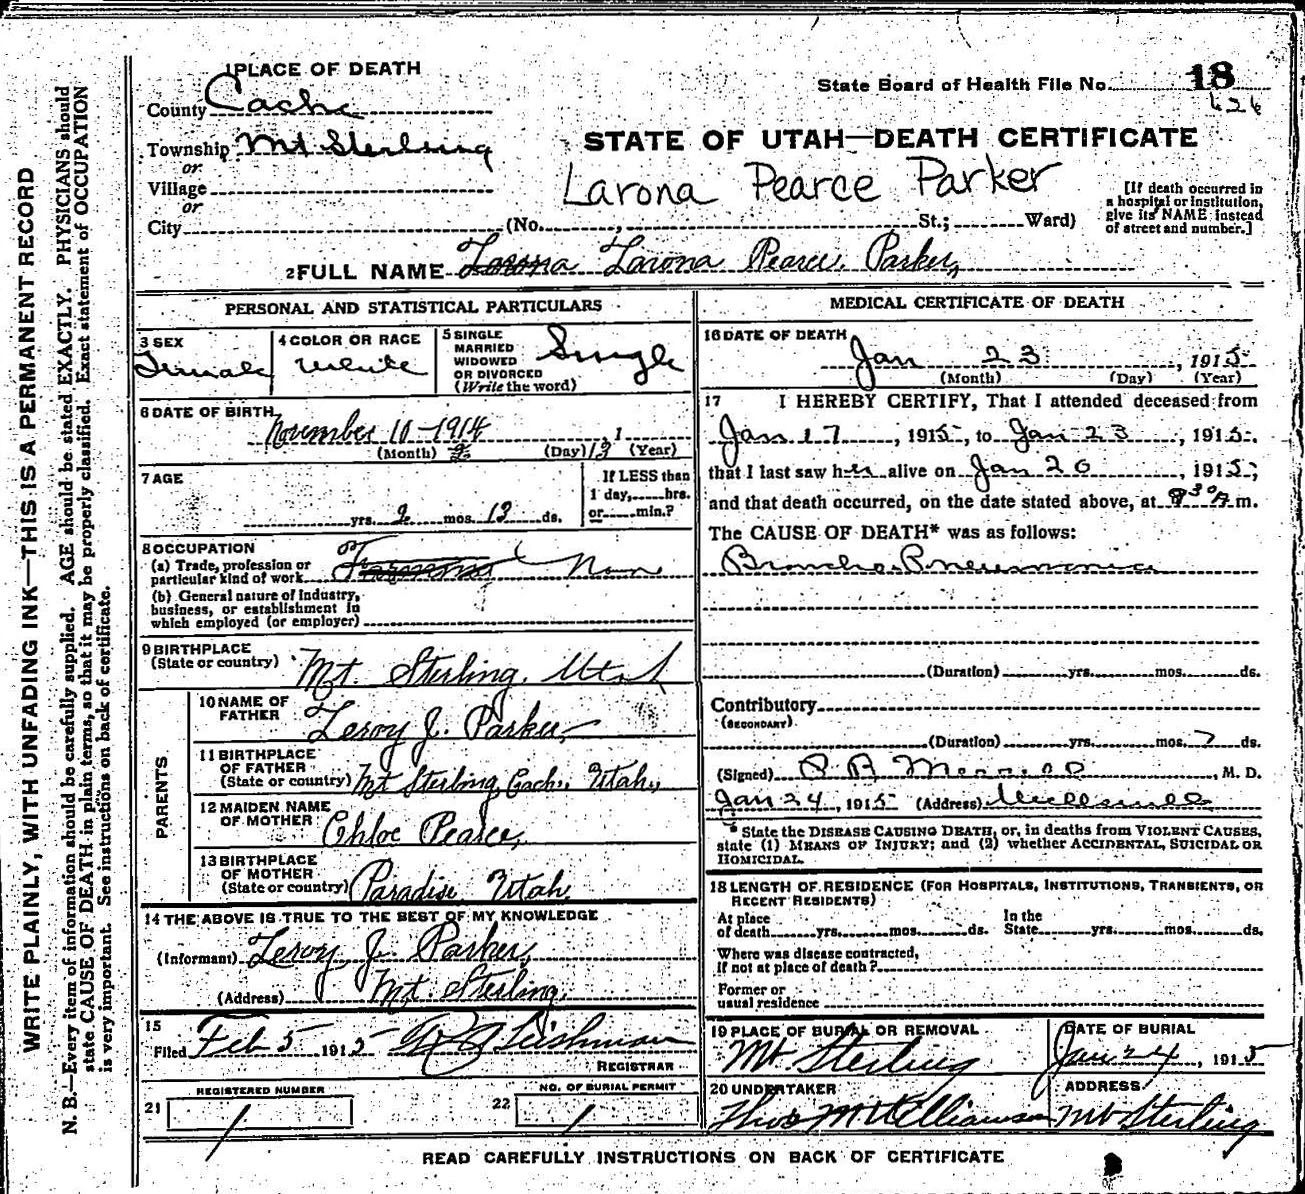 WRITE PLAINLY, WITH UNFADING INK—THIS IS A PERMANENT RECORD
N. B.—Every item of information should be carefully supplied. AGE should be stated EXACTLY. PHYSICIANS should
state CAUSE OF DEATH in plain terms, so that it may be properly classified. Exact statement of OCCUPATION
is very important. See instructions on back of certificate.
1 PLACE OF DEATH
State Board of Health File No. 18
626
County Cache
STATE OF UTAH—DEATH CERTIFICATE
Township Mt Sterling
or
Larona Pearce Parker
Village
or
City (No. , St.; Ward)
[If death occurred in
a hospital or institution,
give its NAME instead
of street and number.]
2 FULL NAME Larona Larona Pearce Parker,
PERSONAL AND STATISTICAL PARTICULARS
3 SEX Female
4 COLOR OR RACE White
5 SINGLE
MARRIED
WIDOWED
OR DIVORCED
(Write the word) Single
6 DATE OF BIRTH
November 10-1914 , 1
(Month) 2 (Day) 13 (Year)
7 AGE
yrs. 2 mos. 13 ds.
If LESS than
1 day, hrs.
or min.?
8 OCCUPATION
(a) Trade, profession or
particular kind of work None
(b) General nature of Industry,
business, or establishment in
which employed (or employer)
9 BIRTHPLACE
(State or country) Mt. Sterling, Utah
PARENTS
10 NAME OF
FATHER Leroy J. Parker,
11 BIRTHPLACE
OF FATHER
(State or country) Mt Sterling, Cach., Utah,
12 MAIDEN NAME
OF MOTHER Chloe Pearce,
13 BIRTHPLACE
OF MOTHER
(State or country) Paradise Utah,
14 THE ABOVE IS TRUE TO THE BEST OF MY KNOWLEDGE
(Informant) Leroy J. Parker,
(Address) Mt. Sterling,
15
Filed Feb 5 1915 Leishman
REGISTRAR
21 REGISTERED NUMBER
1
22 NO. OF BURIAL PERMIT
1
MEDICAL CERTIFICATE OF DEATH
16 DATE OF DEATH
Jan 23 , 1915
(Month) (Day) (Year)
17 I HEREBY CERTIFY, That I attended deceased from
Jan 17 , 1915, to Jan 23 , 1915,
that I last saw her alive on Jan 20 , 1915,
and that death occurred, on the date stated above, at 930 A m.
The CAUSE OF DEATH* was as follows:
Broncho Pneumonia
(Duration) yrs. mos. ds.
Contributory
(SECONDARY)
(Duration) yrs. mos. 7 ds.
(Signed) , M. D.
Jan 24, 1915 (Address) Wellsville
* State the DISEASE CAUSING DEATH, or, in deaths from VIOLENT CAUSES,
state (1) MEANS OF INJURY; and (2) whether ACCIDENTAL, SUICIDAL OR
HOMICIDAL.
18 LENGTH OF RESIDENCE (FOR HOSPITALS, INSTITUTIONS, TRANSIENTS, OR
RECENT RESIDENTS)
At place
of death yrs. mos. ds. In the
State yrs. mos. ds.
Where was disease contracted,
if not at place of death?
Former or
usual residence
19 PLACE OF BURIAL OR REMOVAL
Mt Sterling
DATE OF BURIAL
Jan 24, 1915
20 UNDERTAKER
Thos M Williamson
ADDRESS
Mt Sterling
READ CAREFULLY INSTRUCTIONS ON BACK OF CERTIFICATE